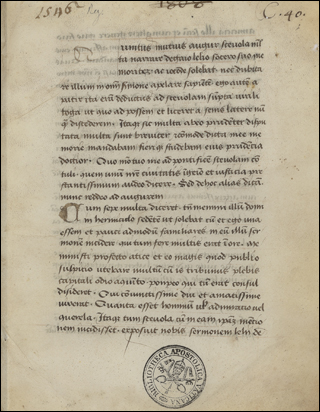 1546 Reg.
C. 40.
uintus mutius augur scevola m̄l
ta narrare de gaio lelio socero suo me
moriter ac iocūde solebat nec dubita
re illum in om̄i sermone apelare sapiētē ego autē a
patre ita erā deductus ad scevolam sūpta virili
toga ut quo ad possem et liceret a senis latere nū
q̄ discederem. Itaq; sic multa abeo prudēter dispu
tata multa sunt breviter cōmode dicta mee me
morie mandabam fieriq; studebam eius prudētia
doctior. Quo mortuo me ad pontificē scevolam cō
tuli. quem unū nrē civitatis īgēnio et iusticia pre
stantissimum audeo dicere. Sed de hoc alias dicā
nunc redeo ad augurem
Cum sepe multa diceret. tū memini illū domi
in hemiciclo sedētē ut solebat cū et ego una
essem et pauci admodū familiares in eū illū ser
monē incidere qui tum fere multis erat ī ore. ac
ministi profecto atice et eo magis quod publio
sulpitio utebare multū cū is tribunus plebis
capitali odio a quīto pompeo qui tū erat consul
disideret. Qui cōiunctissime diu et amatissime
vixerat. Quanta esset hominū vel admiratio vel
querela. Itaq; tum scevola cū in eam ipsā mētio
nem incidisset exposuit nobis sermonem lelii de
BIBLIOTHECA APOSTOLICA VATICANA